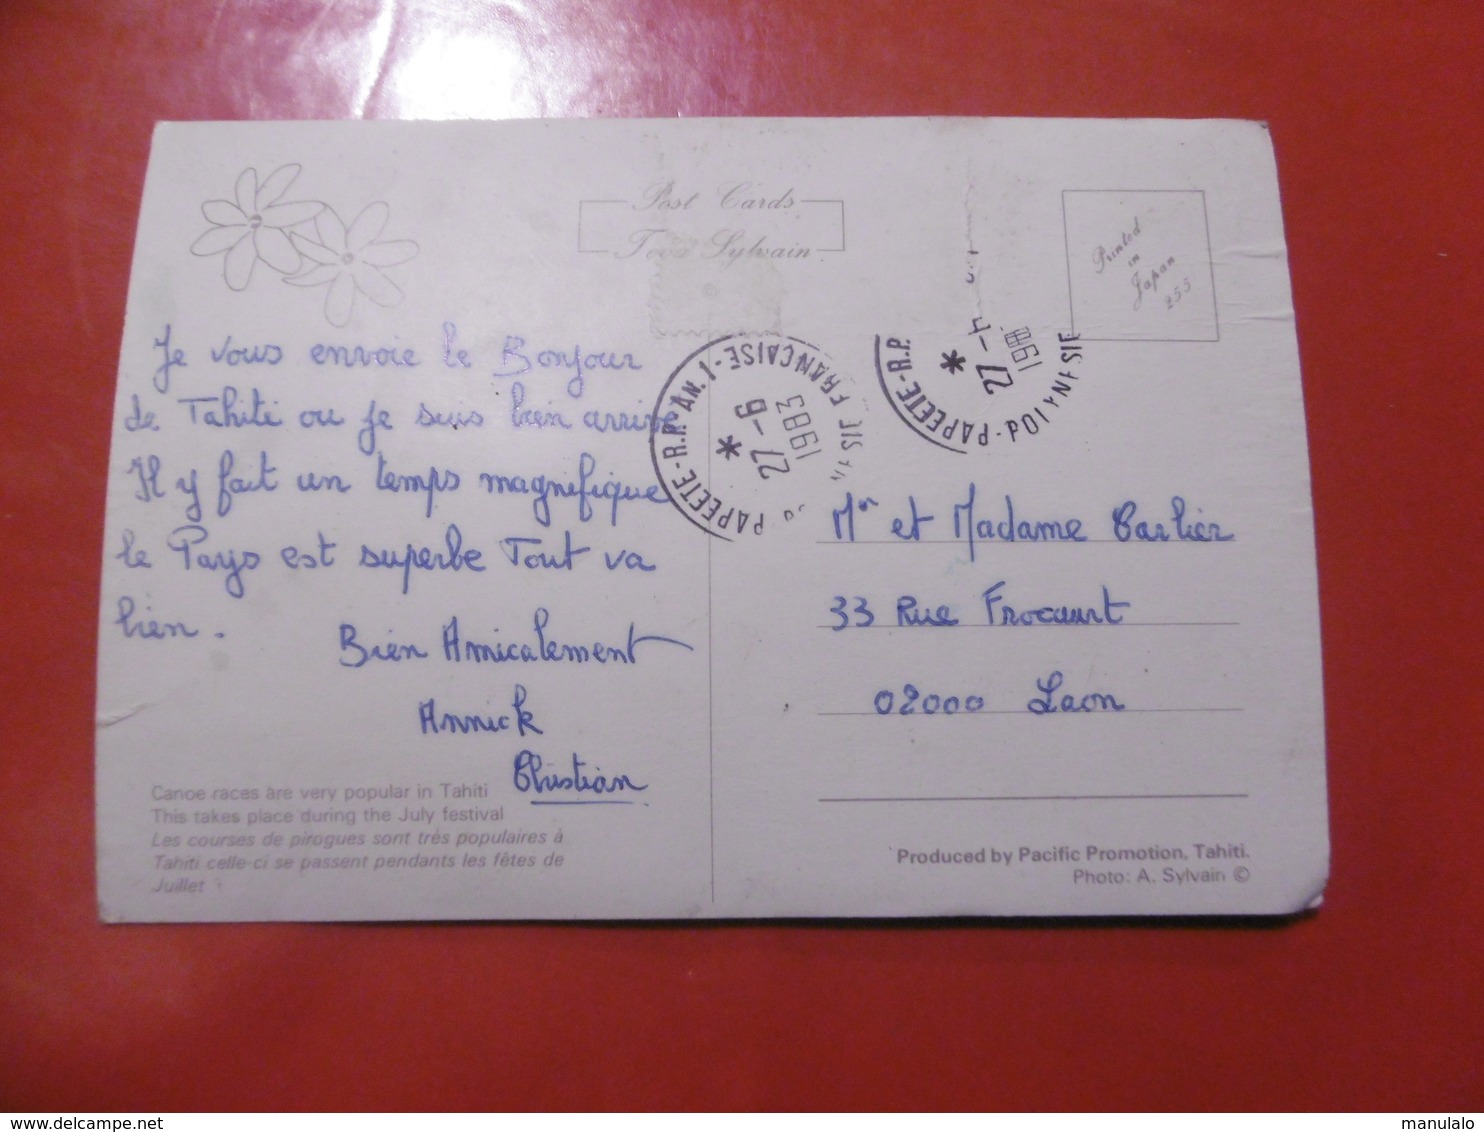 Post Cards
Teva Sylvain
Printed
in
Japan
255
PAPEETE-R.P. AN.1-
FRANCAISE
27-6
1983
PAPEETE-R.P.
POLYNESIE
27-
198
Je vous envoie le Bonjour
de Tahiti ou je suis bien arrivé
Il y fait un temps magnifique
le Pays est superbe Tout va
bien.
Bien Amicalement
Annick
Christian
Mr et Madame Carlier
33 Rue Frocourt
02000 Laon
Canoe races are very popular in Tahiti
This takes place during the July festival
Les courses de pirogues sont trés populaires à
Tahiti celle-ci se passent pendants les fêtes de
Juillet
Produced by Pacific Promotion, Tahiti.
Photo: A. Sylvain ©
www.delcampe.net
manulalo